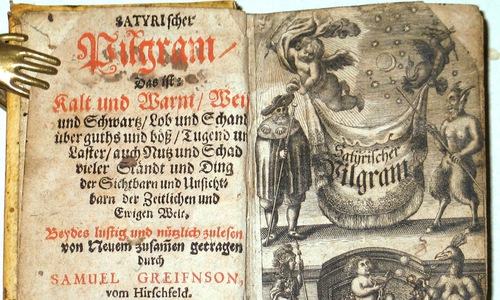 SATYRIscher
Pilgram/
Das ist:
Kalt und Warm/ Weiß
und Schwartz/ Lob und Schand
über guths und böß/ Tugend un
Laster/ auch Nutz und Schad
vieler Ständt und Ding
der Sichtbarn und Unsicht-
barn der Zeitlichen und
Ewigen Welt.
Beydes lustig und nützlich zulesen
von Neuem zusam̄en getragen
durch
SAMUEL GREIFNSON,
vom Hirschfeld.
Satyrischer
Pilgram